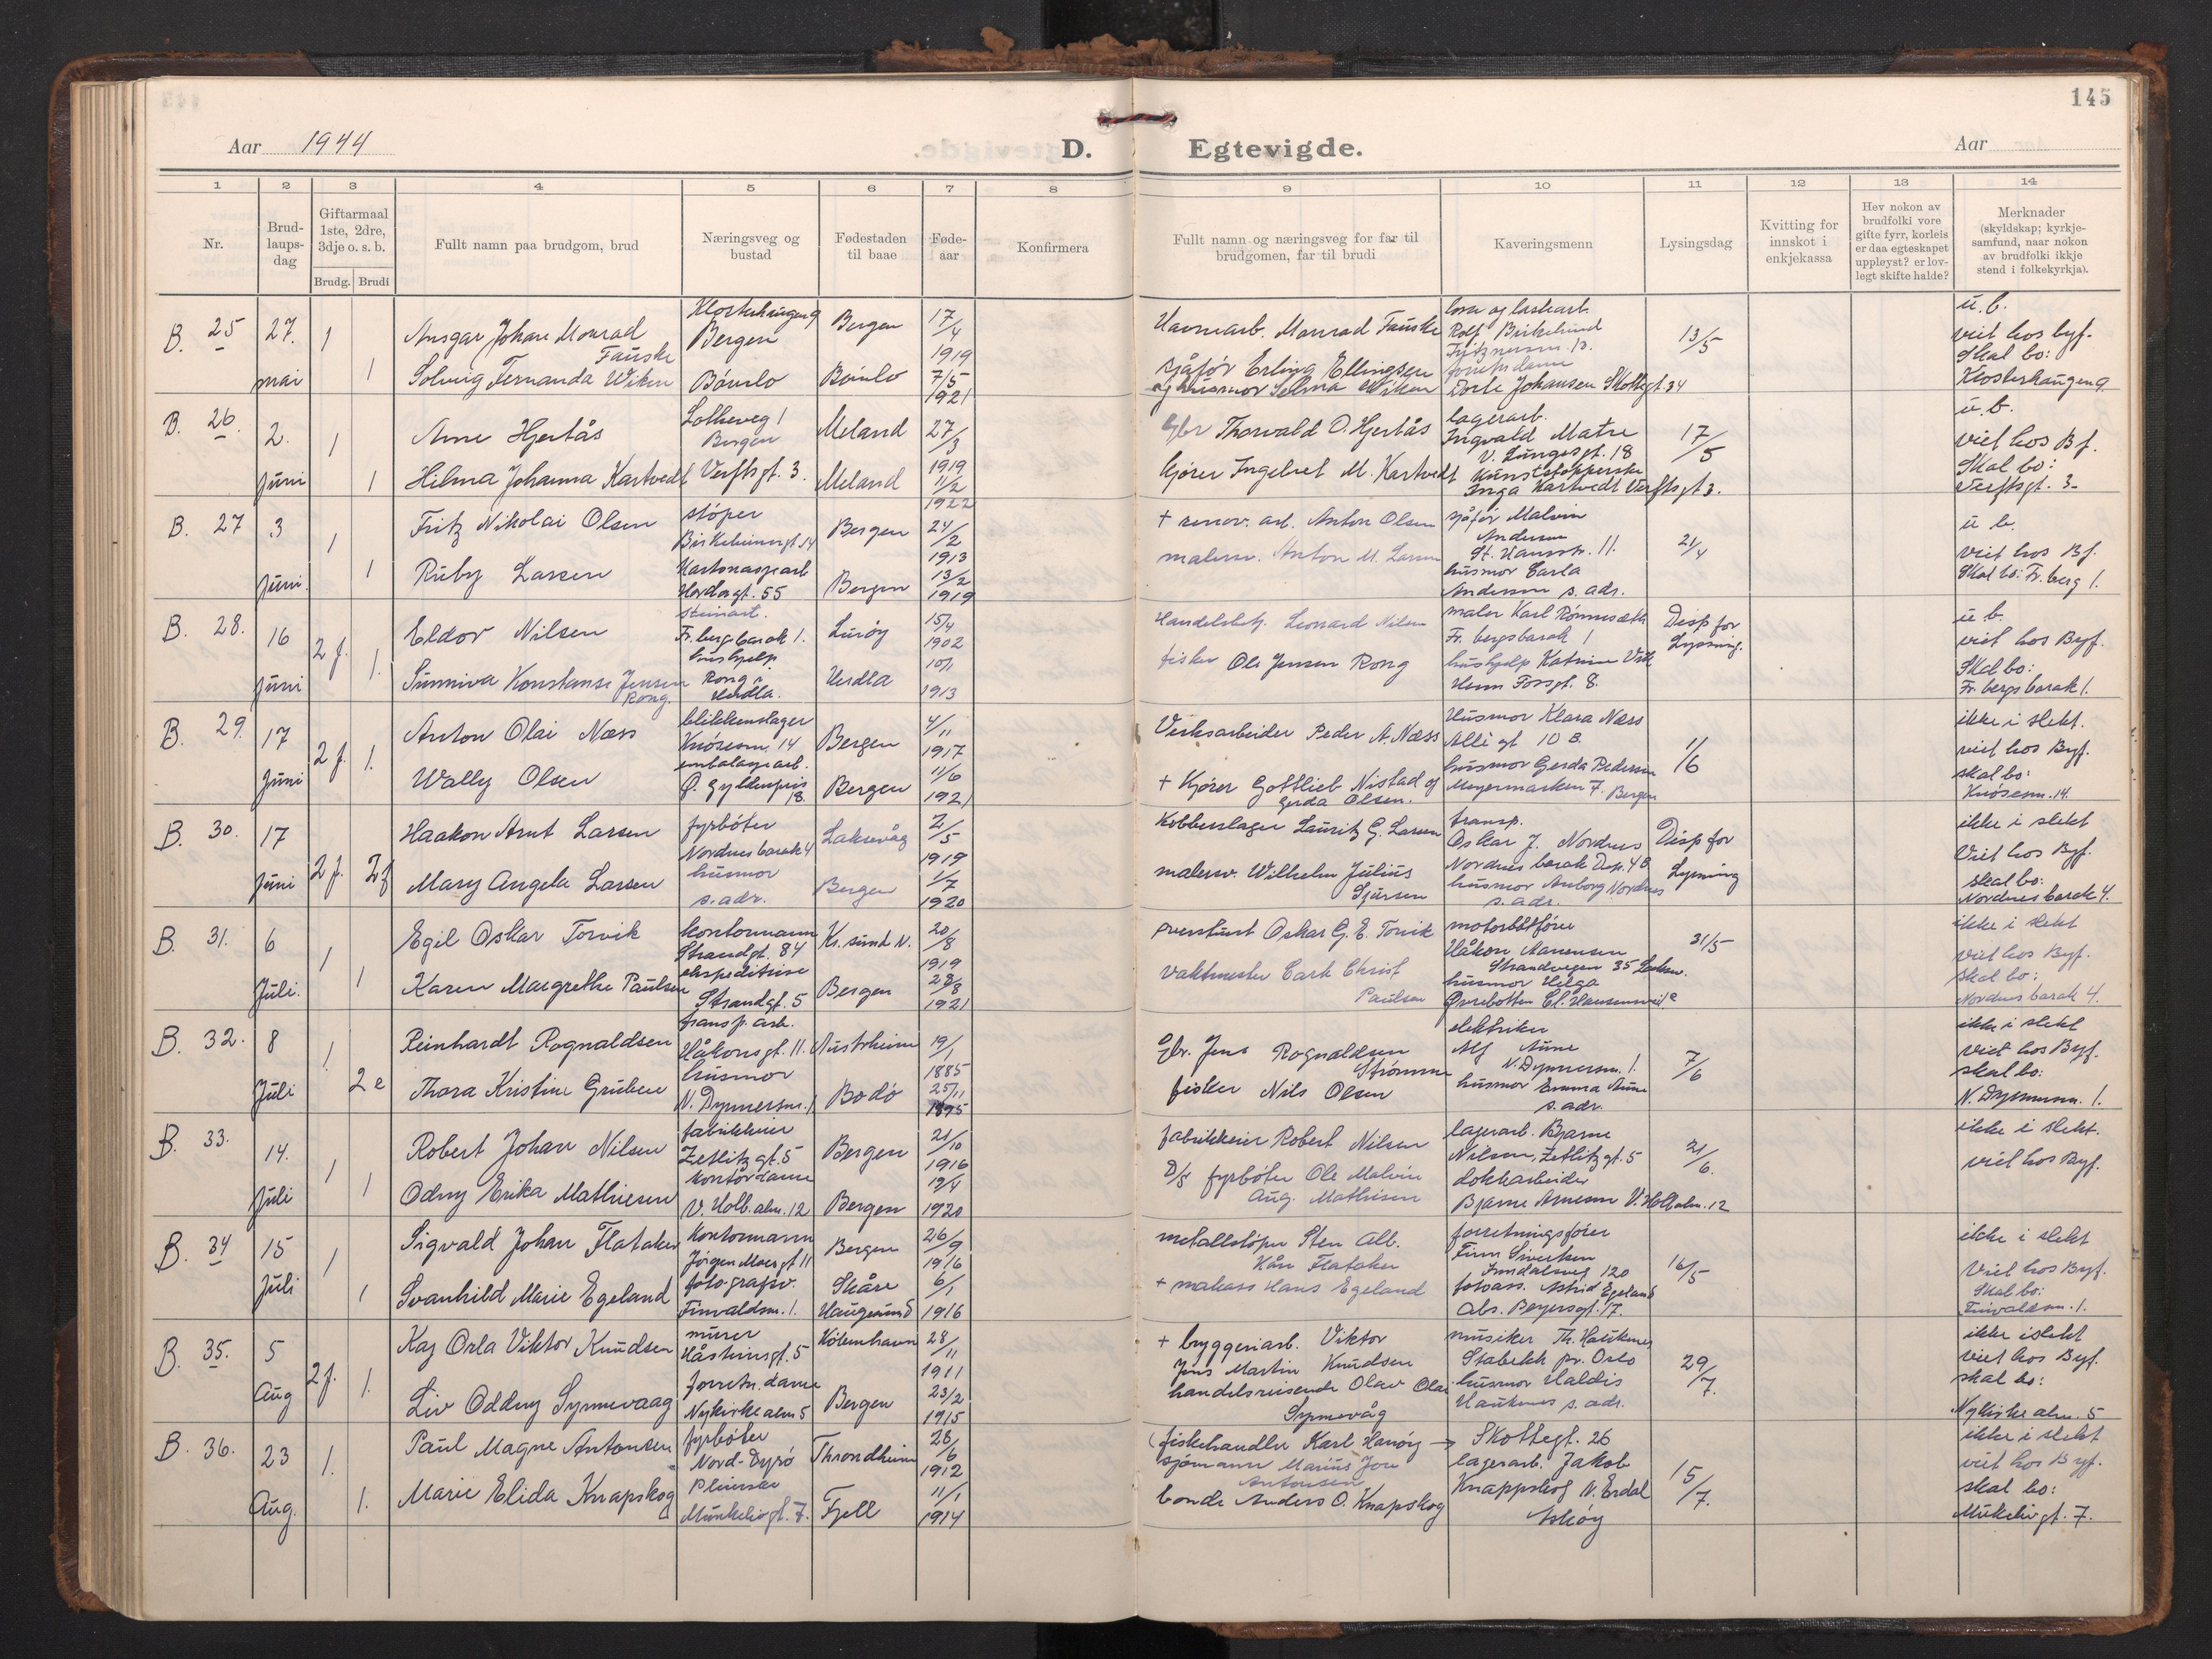 145
Aar 1944
D. Egtevigde.
Aar
1 2 3 4 5 6 7 8 9 10 11 12 13 14
Nr.
Brud-
laups-
dag
Giftarmaal
1ste, 2dre,
3dje o. s. b.
Brudg. Brudi
Fullt namn paa brudgom, brud
Næringsveg og
bustad
Fødestaden
til baae
Føde-
aar
Konfirmera
Fullt namn og næringsveg for far til
brudgomen, far til brudi
Kaveringsmenn
Lysingsdag
Kvitting for
innskot i
enkjekassa
Hev nokon av
brudfolki vore
gifte fyrr, korleis
er daa egteskapet
uppløyst? er lov-
legt skifte halde?
Merknader
(skyldskap; kyrkje-
samfund, naar nokon
av brudfolki ikkje
stend i folkekyrkja).
B. 25 27. mai 1 1
Ansgar Johan Monrad
Fauske
Klosterhaugen 9
Bergen
Bergen
17/4
1919
Solveig Fernanda Wiken
Bömlo
Bömlo
7/5
1921
Havnearb. Monrad Fauske
sjåfør Erling Ellingsen
og husmor Selma Wiken
losse og lastearb.
Rolf Birkelund
Dorte Johansen Skottegt 34
13/5
u. b.
viet hos byf.
Skal bo:
Klosterhaugen 9.
B. 26. 2. Juni 1 1
Arne Hjertås
Lotheveg 1
Bergen
Meland
27/3
1919
Hilma Johanna Kartvedt
Verftsgt. 3.
Meland
11/2
1922
Gbr Thorvald O. Hjertås
kjører Ingebret M. Kartvedt
lagerarb.
Ingvald Matre
V. Lungegt. 18
kunststopperske
Inga Kartvedt Verftsgt 3.
17/5
u. b.
viet hos Bf.
Skal bo:
Verftsgt. 3.
B. 27 3 Juni. 1 1
Fritz Nikolai Olsen
støper
Birkebeinergt. 14
Bergen
24/2
1913
Ruby Larsen
Kartonasjearb
Hordagt. 55
Bergen
13/2
1919
+ renov. arb. Anton Olsen
malersv. Anton M. Larsen
sjåfør Malvin
Andersen
St. Hansstr. 11.
husmor Carla
Andersen s. adr.
21/4
u b.
viet hos Bf.
Skal bo: Fr. berg 1.
B. 28. 16 Juni 2 f. 1.
Eldor Nilsen
steinarb.
Fr. berg barak 1.
Lurøy
15/4
1902
Sunniva Konstanse Jensen
Rong.
hushjelp
Rong i
Herdla.
Herdla
10/1
1913
Handelsbetj. Leonard Nilsen
fisker Ole Jensen Rong
maler Karl Rønnesæth
Fr. bergsbarak 1
hushjelp Katrine Vik
Herm Fossgt. 8.
Disp for
Lysning.
u b.
viet hos Byf.
Skal bo:
Fr. bergs barak 1.
B. 29. 17 Juni 2 f. 1.
Anton Olai Næss
blikkenslager
Knösesm. 14
Bergen
4/11
1917
Wally Olsen
embalagearb.
Ø. Gyldenpris
18.
Bergen
11/6
1921
Verksarbeider Peder A. Næss
+ Kjører Gottlieb Nistad og
Gerda Olsen.
Husmor Klara Næss
Allé gt 10 B.
husmor Gerda Pedersen
Meyermarken 7. Bergen
1/6
ikke i slekt.
viet hos Byf.
skal bo:
Knösesm. 14.
B. 30. 17 Juni 2 f. 2 f
Haakon Arnt Larsen
fyrböter
Nordnes barak 4
Laksevåg
2/5
1919
Mary Angela Larsen
husmor
s. adr.
Bergen
1/7
1920
Kobberslager Lauritz G. Larsen
malersv. Wilhelm Julius
Sjursen
transp.
Oskar J. Nordnes
Nordnes barak Dep. 4 B.
husmor Anborg Nordnes
s. adr.
Disp for
Lysning
ikke i slekt
Viet hos Byf.
skal bo:
Nordnes barak 4.
B. 31. 6 Juli. 1 1
Egil Oskar Torvik
kontormann
Strandgt. 84
Kr. sund N.
20/8
1919
Karen Margrethe Paulsen
ekspeditrise
Strandgt. 5
Bergen
28/8
1921
overstuert Oskar G. E. Torvik
vaktmester Carl Christ
Paulsen
motorbåtfører
Håkon
Strandvegen 35 Laksv.
husmor Helga
Øvrebotten
31/5
ikke i slekt
viet hos Byf.
skal bo:
Nordnes barak 4.
B. 32. 8 Juli 1 2 e
Reinhardt Rognaldsen
transp. arb.
Håkonsgt. 11.
Austrheim
19/1
1885
Thora Kristine Gruben
husmor
N. Dypnersm. 1
Bodö
25/11
1895
Gbr. Jens Rognaldsen
Strømme
fisker Nils Olsen
elektriker
Alf Aune
N. Dypnersm. 1.
husmor Emma Aune
s. adr.
7/6
ikke i slekt
viet hos Byf.
skal bo:
N. Dypnersm. 1.
B. 33. 14. Juli 1 1
Robert Johan Nilsen
fabrikkeier
Zetlitzgt. 5
Bergen
21/10
1916
Odny Erika Mathiesen
kontordame
V. Holb. alm. 12
Bergen
19/4
1920
fabrikkeier Robert Nilsen
D/S fyrböter Ole Malvin
Aug. Mathisen
lagerarb. Bjarne
Nilsen, Zetlitzgt. 5
dokkarbeider
Bjarne Arnesen V. Holb alm. 12
21/6.
ikke i slekt.
viet hos Byf.
B. 34 15 Juli 1 1
Sigvald Johan Flataker
Kontormann
Jörgen Moesgt 11
Bergen
26/9
1916
Svanhild Marie Egeland
fotografsv.
Finvaldsm. 1.
Skåre
Haugesund
6/1
1916
metallstöper Sten Alb.
Kåre Flataker
+ Hans Egeland
forretningsfører
Finn Sivertsen
120
fotoass. Astrid Egeland
Abs. Beyersgt. 17.
16/5
ikke i slekt
Viet hos Byf.
Skal bo:
Finvaldsm. 1.
B. 35. 5 Aug 2 f. 1.
Kaj Orla Viktor Knudsen
murer
Håsteinsgt. 5
Köbenhavn
28/11
1911
Liv Oddny Synnevaag
forretn. dame
Nykirkealm 5
Bergen
23/2
1915
+ bryggeriarb. Viktor
Jens Martin Knudsen
handelsreisende Olav Olai
Synnevåg
musiker Th. Hauknes
Stabekk pr. Oslo
husmor Haldis
Hauknes s. adr.
29/7.
ikke i slekt
viet hos Byf.
skal bo:
Nykirke alm. 5
B. 36. 23 Aug. 1. 1.
Paul Magne Antonsen
fyrböter
Nord-Dyrö
Throndheim
28/6
1912
Marie Elida Knapskog
Pleierske
Munkelivgt. 7.
Fjell
11/1
1914
(fiskehandler Karl Hanöy → Skottegt. 26
sjømann Marius Jon
Antonsen
bonde Anders O. Knapskog
lagerarb. Jakob
Knappskog N. Erdal
Askøy
15/7.
ikke i slekt
viet hos Byf.
skal bo:
Mukelivgt. 7.